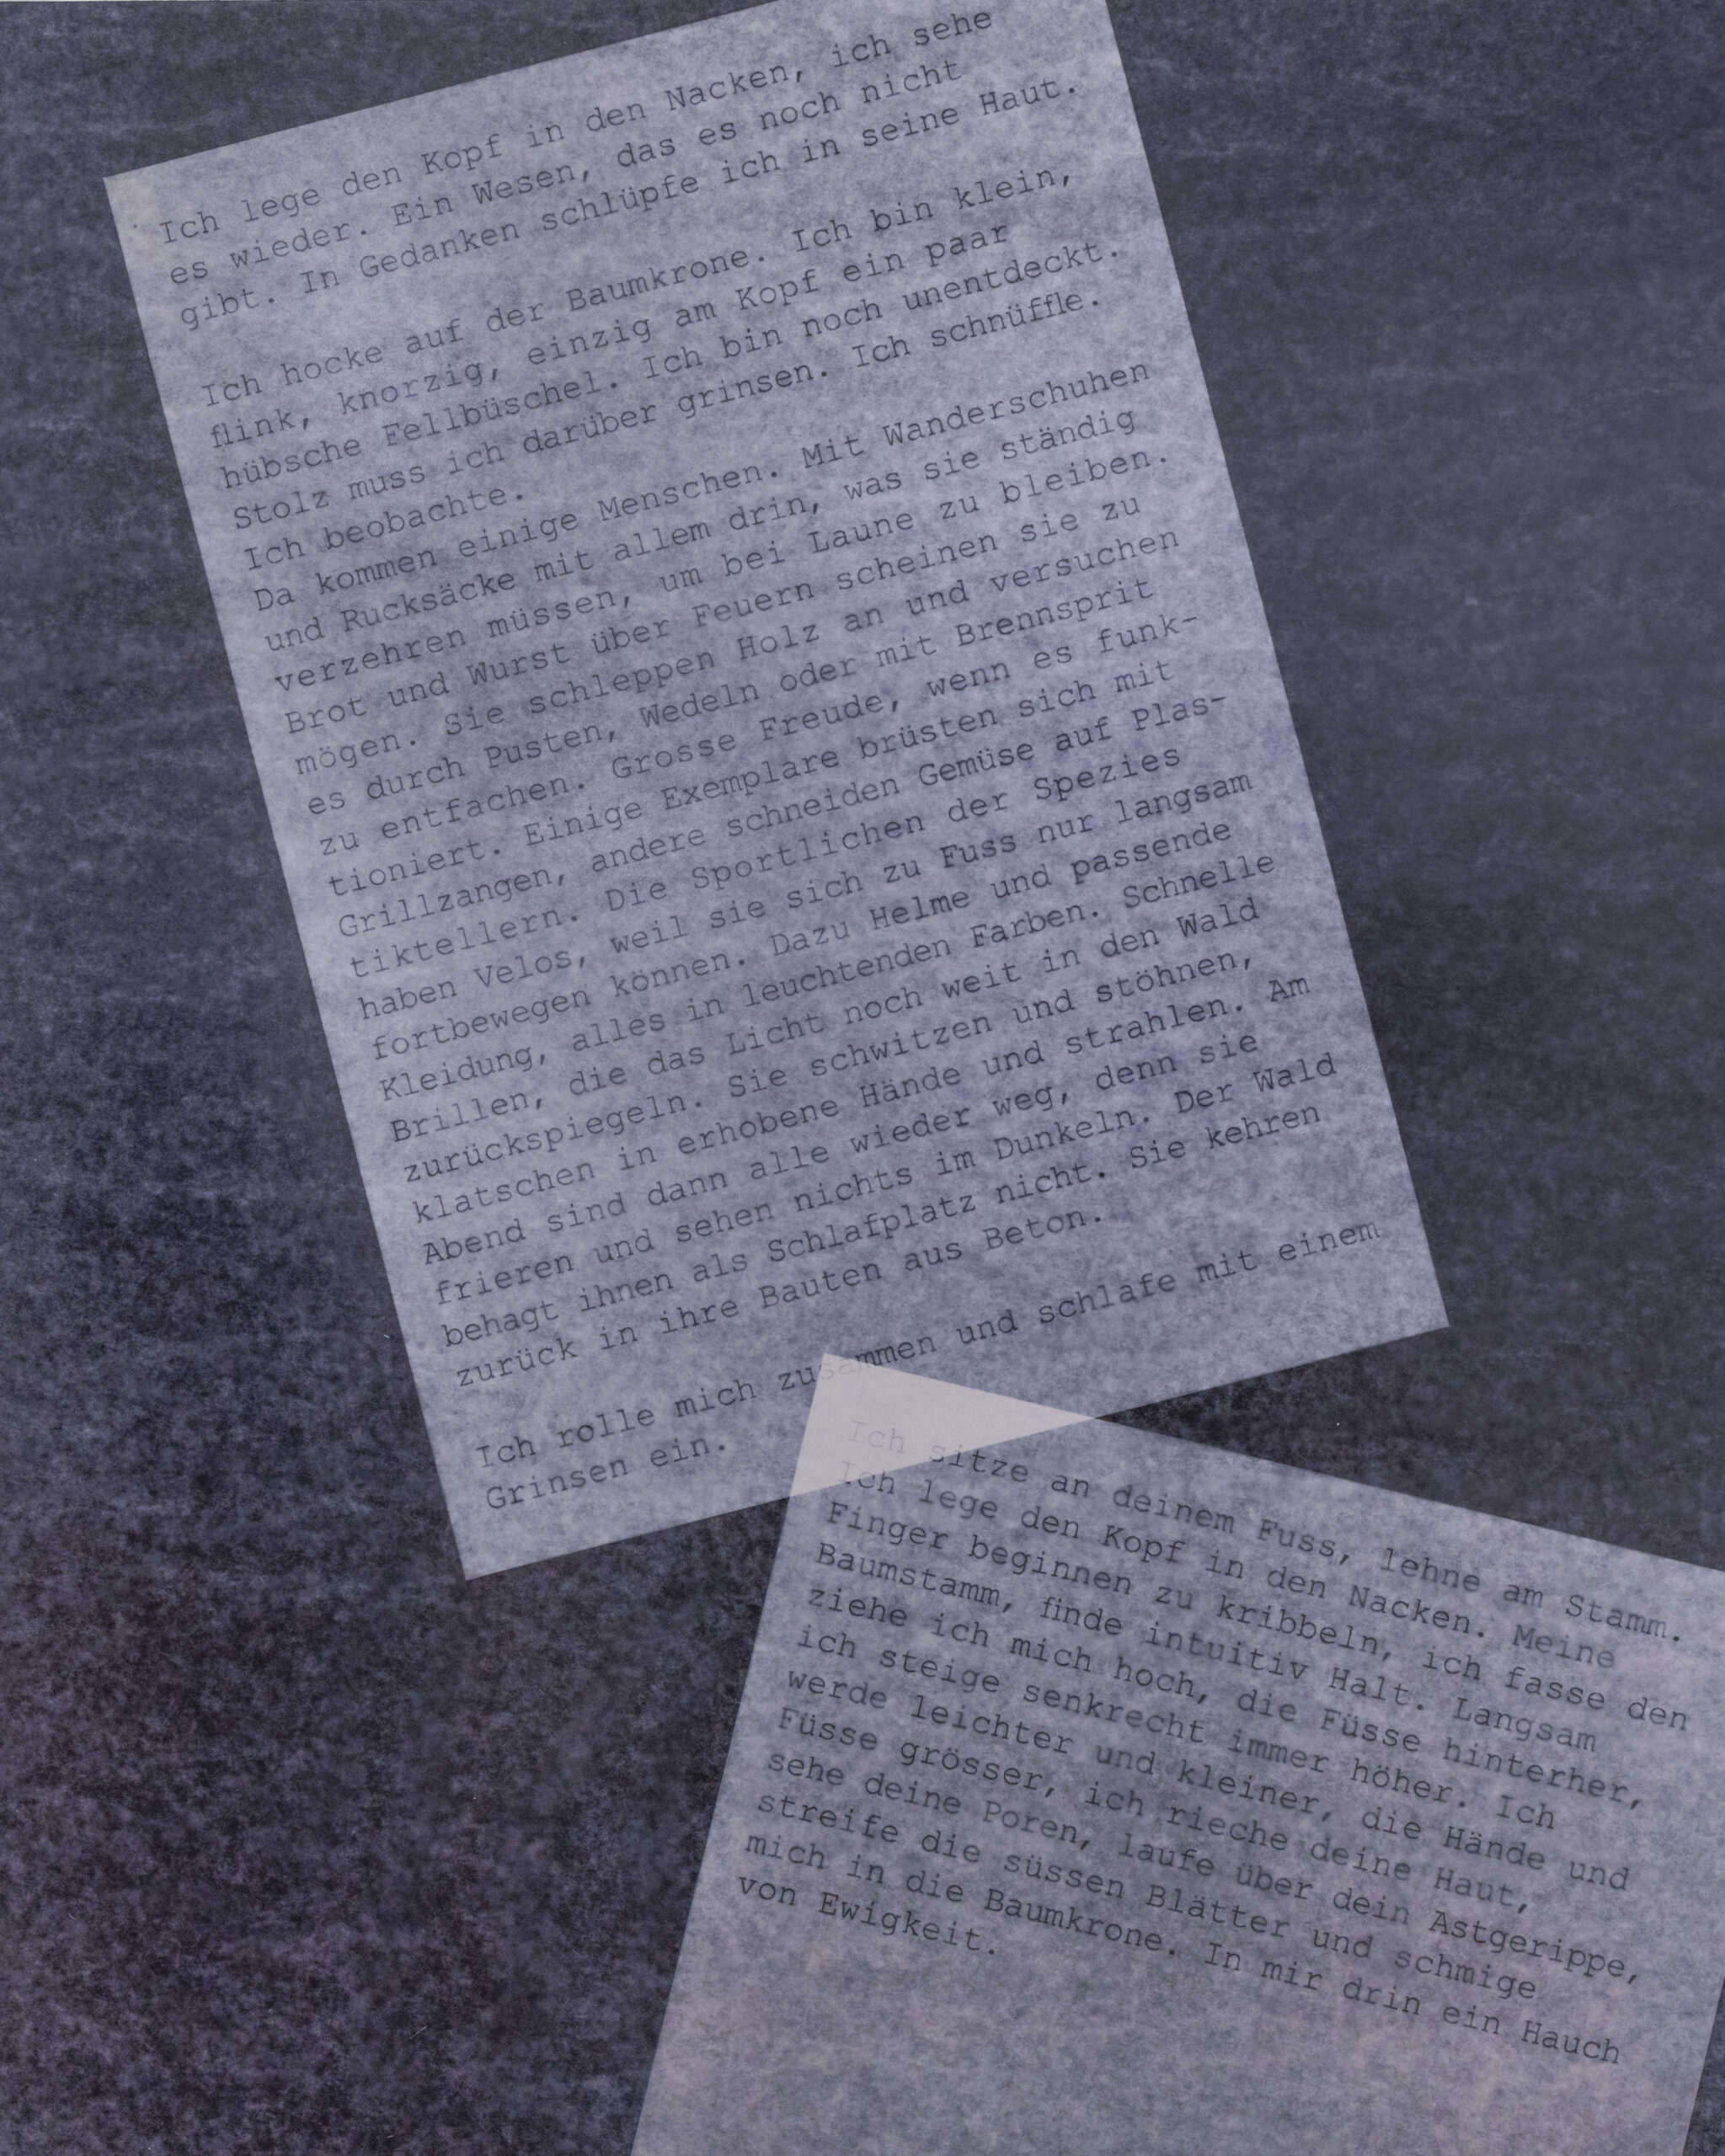 Ich lege den Kopf in den Nacken, ich sehe
es wieder. Ein Wesen, das es noch nicht
gibt. In Gedanken schlüpfe ich in seine Haut.
Ich hocke auf der Baumkrone. Ich bin klein,
flink, knorzig, einzig am Kopf ein paar
hübsche Fellbüschel. Ich bin noch unentdeckt.
Stolz muss ich darüber grinsen. Ich schnüffle.
Ich beobachte.
Da kommen einige Menschen. Mit Wanderschuhen
und Rucksäcke mit allem drin, was sie ständig
verzehren müssen, um bei Laune zu bleiben.
Brot und Wurst über Feuern scheinen sie zu
mögen. Sie schleppen Holz an und versuchen
es durch Pusten, Wedeln oder mit Brennsprit
zu entfachen. Grosse Freude, wenn es funk-
tioniert. Einige Exemplare brüsten sich mit
Grillzangen, andere schneiden Gemüse auf Plas-
tiktellern. Die Sportlichen der Spezies
haben Velos, weil sie sich zu Fuss nur langsam
fortbewegen können. Dazu Helme und passende
Kleidung, alles in leuchtenden Farben. Schnelle
Brillen, die das Licht noch weit in den Wald
zurückspiegeln. Sie schwitzen und stöhnen,
klatschen in erhobene Hände und strahlen. Am
Abend sind dann alle wieder weg, denn sie
frieren und sehen nichts im Dunkeln. Der Wald
behagt ihnen als Schlafplatz nicht. Sie kehren
zurück in ihre Bauten aus Beton.
Ich rolle mich zusammen und schlafe mit einem
Grinsen ein.
Ich sitze an deinem Fuss, lehne am Stamm.
Ich lege den Kopf in den Nacken. Meine
Finger beginnen zu kribbeln, ich fasse den
Baumstamm, finde intuitiv Halt. Langsam
ziehe ich mich hoch, die Füsse hinterher,
ich steige senkrecht immer höher. Ich
werde leichter und kleiner, die Hände und
Füsse grösser, ich rieche deine Haut,
sehe deine Poren, laufe über dein Astgerippe,
streife die süssen Blätter und schmige
mich in die Baumkrone. In mir drin ein Hauch
von Ewigkeit.